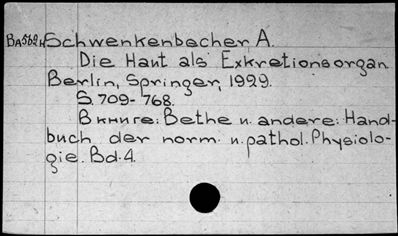 BA562н Schwenkenbecher A.
Die Haut als Exkretionsorgan
Berlin, Springer, 1929.
S. 709-768.
В книге: Bethe u. andere: Hand-
buch der norm. u. pathol. Physiolo-
gie. Bd. 4.